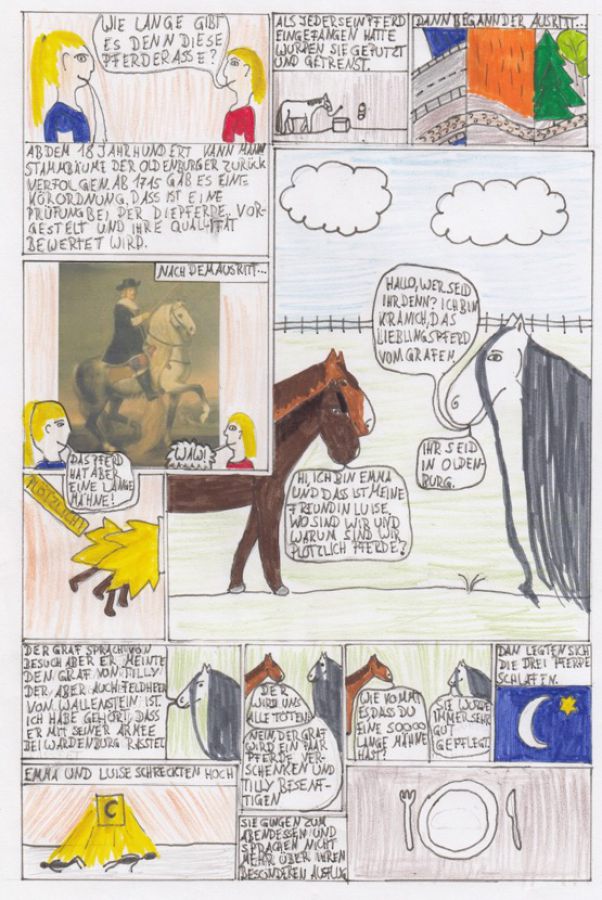 WIE LANGE GIBT
ES DENN DIESE
PFERDERASSE?
ALS JEDER SEIN PFERD
EINGEFANGEN HATTE
WURDEN SIE GEPUTZT
UND GETRENST.
DANN BEGANN DER AUSRITT...
AB DEM 18 JAHRHUNDERT VANN MANN
STAMMBÄUME DER OLDENBURGER ZURÜCK
VERFOLGEN. AB 1715 GAB ES EINE
KÖRORDNUNG, DASS IST EINE
PRÜFUNG BEI DER DIE PFERDE VOR-
GESTELT UND IHRE QUALITÄT
BEWERTET WIRD.
NACH DEM AUSRITT...
DAS PFERD
HAT ABER
EINE LANGE
MÄHNE!
WAW!
HALLO, WER SEID
IHR DENN? ICH BIN
KRANICH, DAS
LIEBLINGSPFERD
VOM GRAFEN.
IHR SEID
IN OLDEN-
BURG.
HI, ICH BIN EMMA
UND DASS IST MEINE
FREUNDIN LUISE.
WO SIND WIR UND
WARUM SIND WIR
PLÖTZLICH PFERDE?
PLÖTZLICH
DER GRAF SPRACH VON
BESUCH ABER ER MEINTE
DEN GRAF VON TILLY
DER ABER AUCH FELDHERR
VON WALLENSTEIN IST.
ICH HABE GEHÖRT, DASS
ER MIT SEINER ARMEE
BEI WARDENBURG RASTET
DER
WIRD UNS
ALLE TÖTEN!
NEIN, DER GRAF
WIRD EIN PAAR
PFERDE VER-
SCHENKEN UND
TILLY BESENF-
TIGEN
WIE KOMMT
ES DASS DU
EINE SOOOO
LANGE MÄHNE
HAST?
SIE WURDE
IMMER SEHR
GUT
GEPFLEGT.
DAN LEGTEN SICH
DIE DREI PFERDE
SCHLAFEN.
EMMA UND LUISE SCHRECKTEN HOCH
C
SIE GINGEN ZUM
ABENDESSEN UND
SPRACHEN NICHT
MEHR ÜBER IHREN
BESONDEREN AUSFLUG